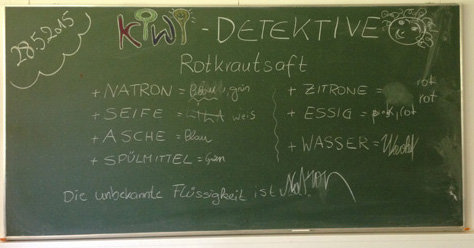 28.5.2015
KiWi-DETEKTIVE
Rotkrautsaft
+ NATRON = Blau grün
+ SEIFE = weis
+ ASCHE = Blau
+ SPÜLMITTEL =
+ ZITRONE = rot
+ ESSIG = rot
+ WASSER =
Die unbekannte Flüssigkeit ist Natron.